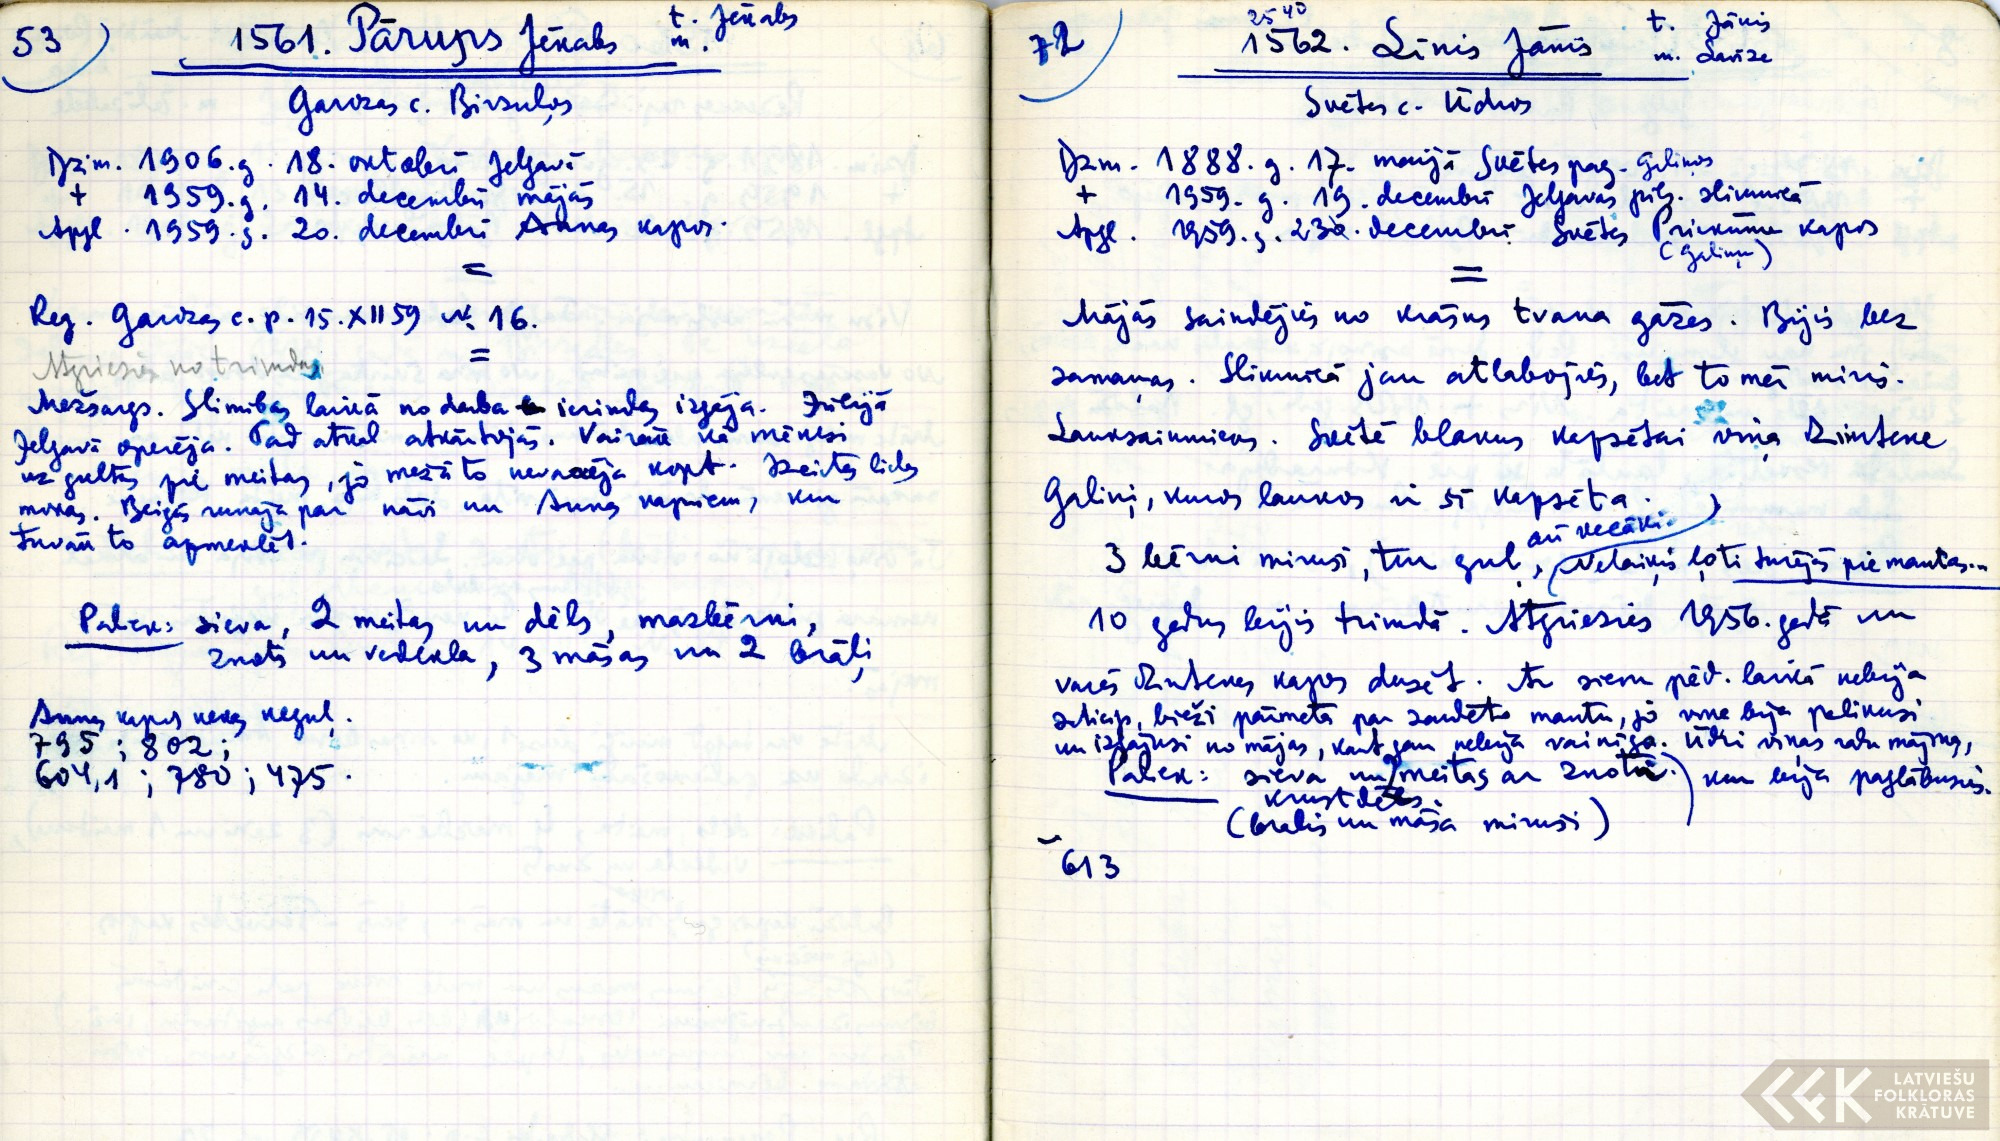 53
1561. Pārups Jēkabs t. Jēkabs
m.
Garozas c. Birzuļos
Dzim. 1906. g. 18. oktobrī Jelgavā
+ 1959. g. 14. decembrī mājās
Apgl. 1959. g. 20. decembrī Annas kapos.
=
Reg. Garozas c. p. 15.XII 59 N. 16.
=
Atgriezies no trimdas
Mežsargs. Slimības laikā no darba ierindas izgāja. Jūlijā
Jelgavā operēja. Tad atkal atkārtojās. Vairāk kā mēnesi
uz gultas pie meitas, jo mežā to nevarēja kopt. Izciestas lielas
mokas. Beigās runāja par nāvi un Annas kapiem, kur
tuvāk to apmeklēt.
Paliek: sieva, 2 meitas un dēls, mazbērni,
znots un vedekla, 3 māsas un 2 brāļi
Annas kapos nekas negul.
795 ; 802 ;
604,1 ; 780 ; 475.
72
2540
1562. Līnis Jānis t. Jānis
m. Lavīze
Svētes c. Ūdros
Dzim. 1888. g. 17. maijā Svētes pag. Galiņos
+ 1959. g. 19. decembrī Jelgavas pils. slimnīcā
Apgl. 1959. g. 23. decembrī Svētes Priekūnu kapos
(Galiņu)
=
Mājās saindējies no krāsns tvana gāzes. Bijis bez
samaņas. Slimnīcā jau atlabojies, bet tomēr miris.
Lauksaimnieks. Svētē blakus kapsētai viņa dzimtene
Galiņi, kuros laukos ir šī kapsēta.
arī vecāki.
3 bērni miruši, tur guļ, Nelaiķis ļoti turējās pie mantas..
10 gadus bijis trimdā. Atgriezies 1956. gadā un
varēs dzimtenes kapos dusēt. Ar sievu pēd. laikā nebija
saticis, bieži pārmeta par zaudēto mantu, jo viņa bija palikusi
un izgājusi no mājas, kaut gan nebija vainīga. Ūdri viņas radu mājas,
kur bija paglābusies.
Paliek: sieva un 2 meitas ar znotu.
krustdēls.
(brālis un māsa miruši)
613
LATVIEŠU
FOLKLORAS
KRĀTUVE